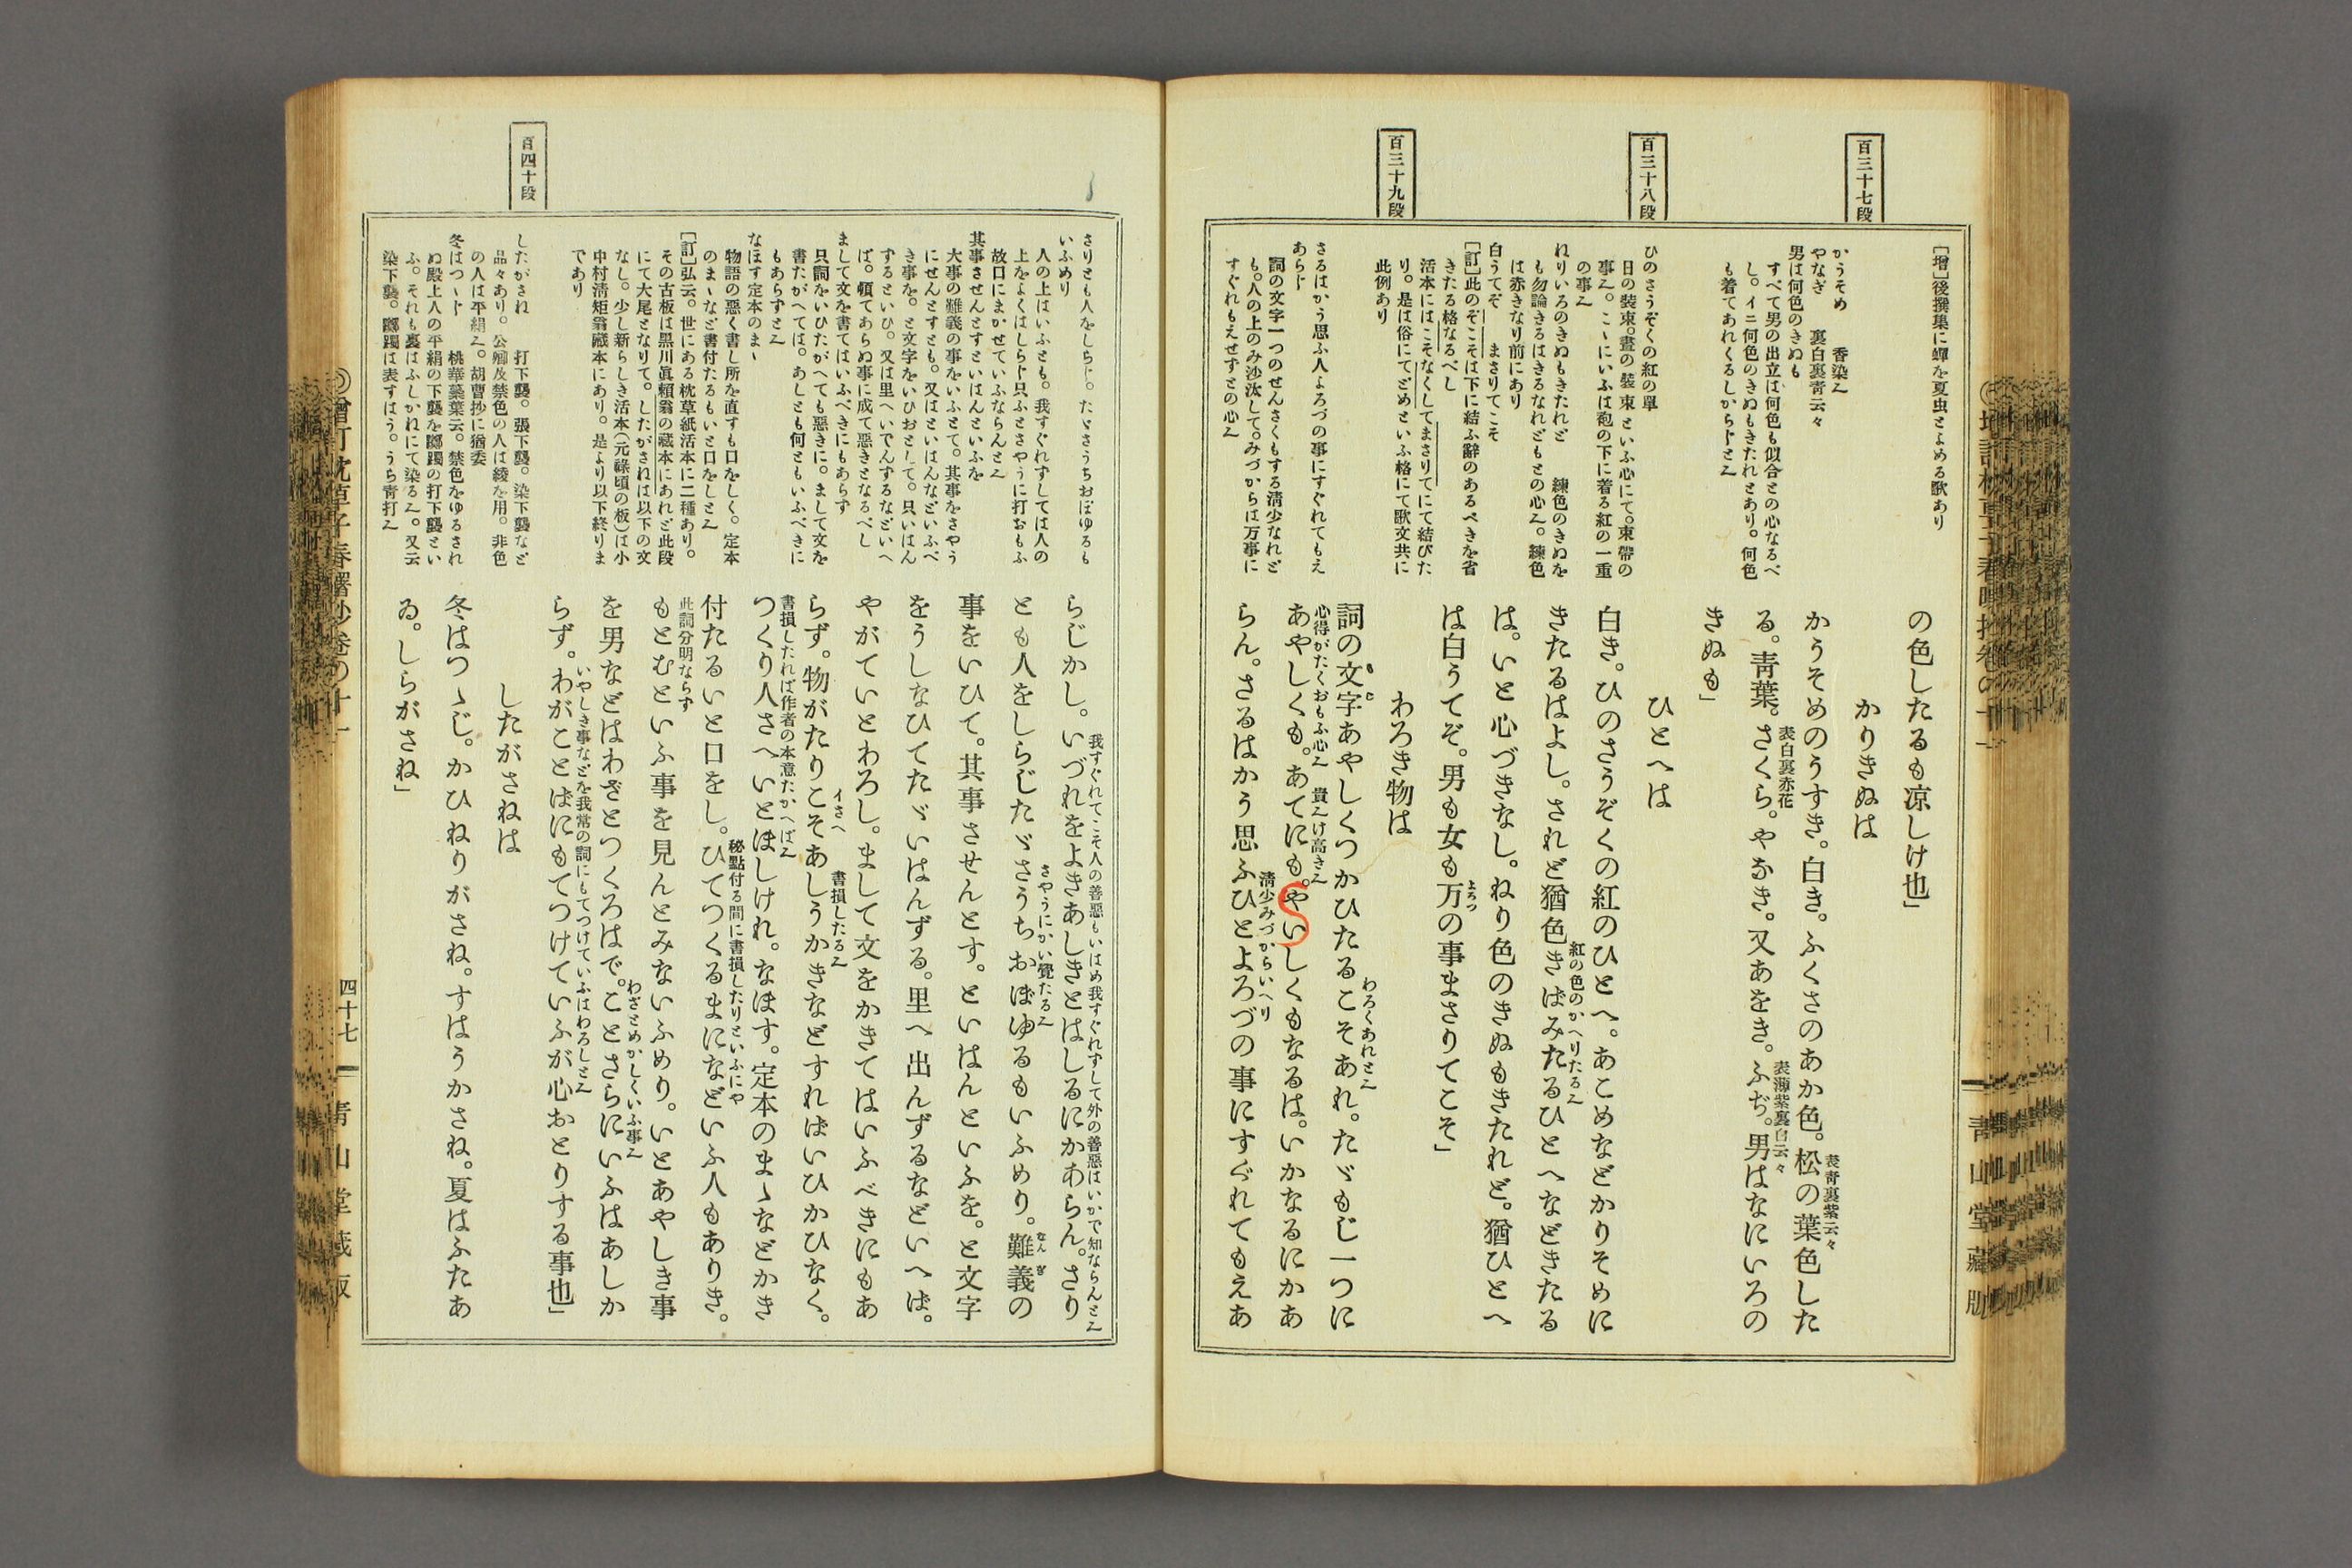 百三十七段
百三十八段
百三十九段
［增］後撰集に蟬を夏虫とよめる歌あり
かうそめ　香染〻
やなぎ　裏白裏靑云々
男は何色のきぬも
すべて男の出立は何色も似合との心なるべ
し。イニ何色のきぬもきたれとあり。何色
も着てあれくるしからじと〻
ひのさうぞくの紅の單
日の裝束。晝の裝束といふ心にて。束帶の
事〻。こゝにいふは砲の下に着る紅の一重
の事〻
ねりいろのきぬもきたれど　練色のきぬを
も勿論きるはきるなれどもとの心〻。練色
は赤きなり前にあり
白うてぞ　まさりてこそ
［訂］此のぞこそは下に結ふ辭のあるべきを省
きたる格なるべし
活本にはこそなくしてまさりてにて結びた
り。是は俗にてどめといふ格にて歌文共に
此例あり
さるはかう思ふ人よろづの事にすぐれてもえ
あらじ
詞の文字一つのせんさくもする淸少なれど
も。人の上のみ沙汰して。みづからは万事に
すぐれもえせずとの心〻
の色したるも凉しけ也」
かりきぬは
かうそめのうすき。白き。ふくさのあか色。松の葉色した
表靑裏紫云々
る。靑葉。さくら。やなき。又あをき。ふぢ。男はなにいろの
表白裏赤花
表瀬紫裏白云々
きぬも」
ひとへは
白き。ひのさうぞくの紅のひとへ。あこめなどかりそめに
きたるはよし。されど猶色きばみたるひとへなどきたる
紅の色のかへりたる〻
は。いと心づきなし。ねり色のきぬもきたれど。猶ひとへ
は白うてぞ。男も女も万の事まさりてこそ」
よろつ
わろき物は
詞の文字あやしくつかひたるこそあれ。たゞもじ一つに
もじ
わろくあれと〻
あやしくも。あてにも。やいしくもなるは。いかなるにかあ
心得がたくおもふ心〻
貴〻け高き〻
らん。さるはかう思ふひとよろづの事にすぐれてもえあ
淸少みづからいへり
靑山堂藏版
百四十段
さりとも人をしらじ。たゞさうちおぼゆるも
いふめり
人の上はいふとも。我すぐれずしては人の
上をよくはしらじ只ふとさやうに打おもふ
故口にまかせていふならんと〻
其事させんとすといはんといふを
大事の難義の事をいふとて。其事をさやう
にせんとすとも。又はといはんなどいふべ
き事を。と文字をいひおとして。只いはん
ずるといひ。又は里へいでんずるなどいへ
ば。頓てあらぬ事に成て惡きとなるべし
まして文を書てはいふべきにもあらず
只詞をいひたがへても惡きに。まして文を
書たがへては。あしとも何ともいふべきに
もあらずと〻
なほす定本のまゝ
物語の惡く書し所を直すも口をしく。定本
のまゝなど書付たるもいと口をしと〻
［訂］弘云。世にある枕草紙活本に二種あり。
その古板は黒川眞賴翁の藏本にあれど此段
にて大尾となりて。したがさねは以下の文
なし。少し新らしき活本（元祿頃の板）は小
中村淸矩翁藏本にあり。是より以下終りま
であり
したがさね　打下襲。張下襲。染下襲など
品々あり。公卿及禁色の人は綾を用。非色
の人は平絹〻。胡曹抄に猶委
冬はつゝじ　桃華蘂葉云。禁色をゆるされ
ぬ殿上人の平絹の下襲を躑躅の打下襲とい
ふ。それも裏はふしかねにて染る〻。又云
染下襲。躑躅は表すはう。うち靑打〻
らじかし。いづれをよきあしきとはしるにかあらん。さり
我すぐれてこそ人の善惡もいはめ我すぐれずして外の善惡はいかで知ならんと〻
とも人をしらじたゞさうちおぼゆるもいふめり。難義の
さやうにかい覺たる〻
なんぎ
事をいひて。其事させんとす。といはんといふを。と文字
をうしなひてたゞいはんずる。里へ出んずるなどいへば。
やがていとわろし。まして文をかきてはいふべきにもあ
らず。物がたりこそあしうかきなどすればいひかひなく。
イさへ
書損したる〻
つくり人さへいとほしけれ。なほす。定本のまゝなどかき
書損したれば作者の本意たかへば〻
付たるいと口をし。ひてつくるまになどいふ人もありき。
秘點付る間に書損したりといふにや
もとむといふ事を見んとみないふめり。いとあやしき事
此詞分明ならず
を男などはわざとつくろはで。ことさらにいふはあしか
わざとめかしくいふ事〻
らず。わがことばにもてつけていふが心おとりする事也」
いやしき事などを我常の詞にもてつけていふはわろしと〻
したがさねは
冬はつゝじ。かひねりがさね。すはうかさね。夏はふたあ
ゐ。しらがさね」
增訂枕草子春曙抄卷の十一
四十七
靑山堂藏版